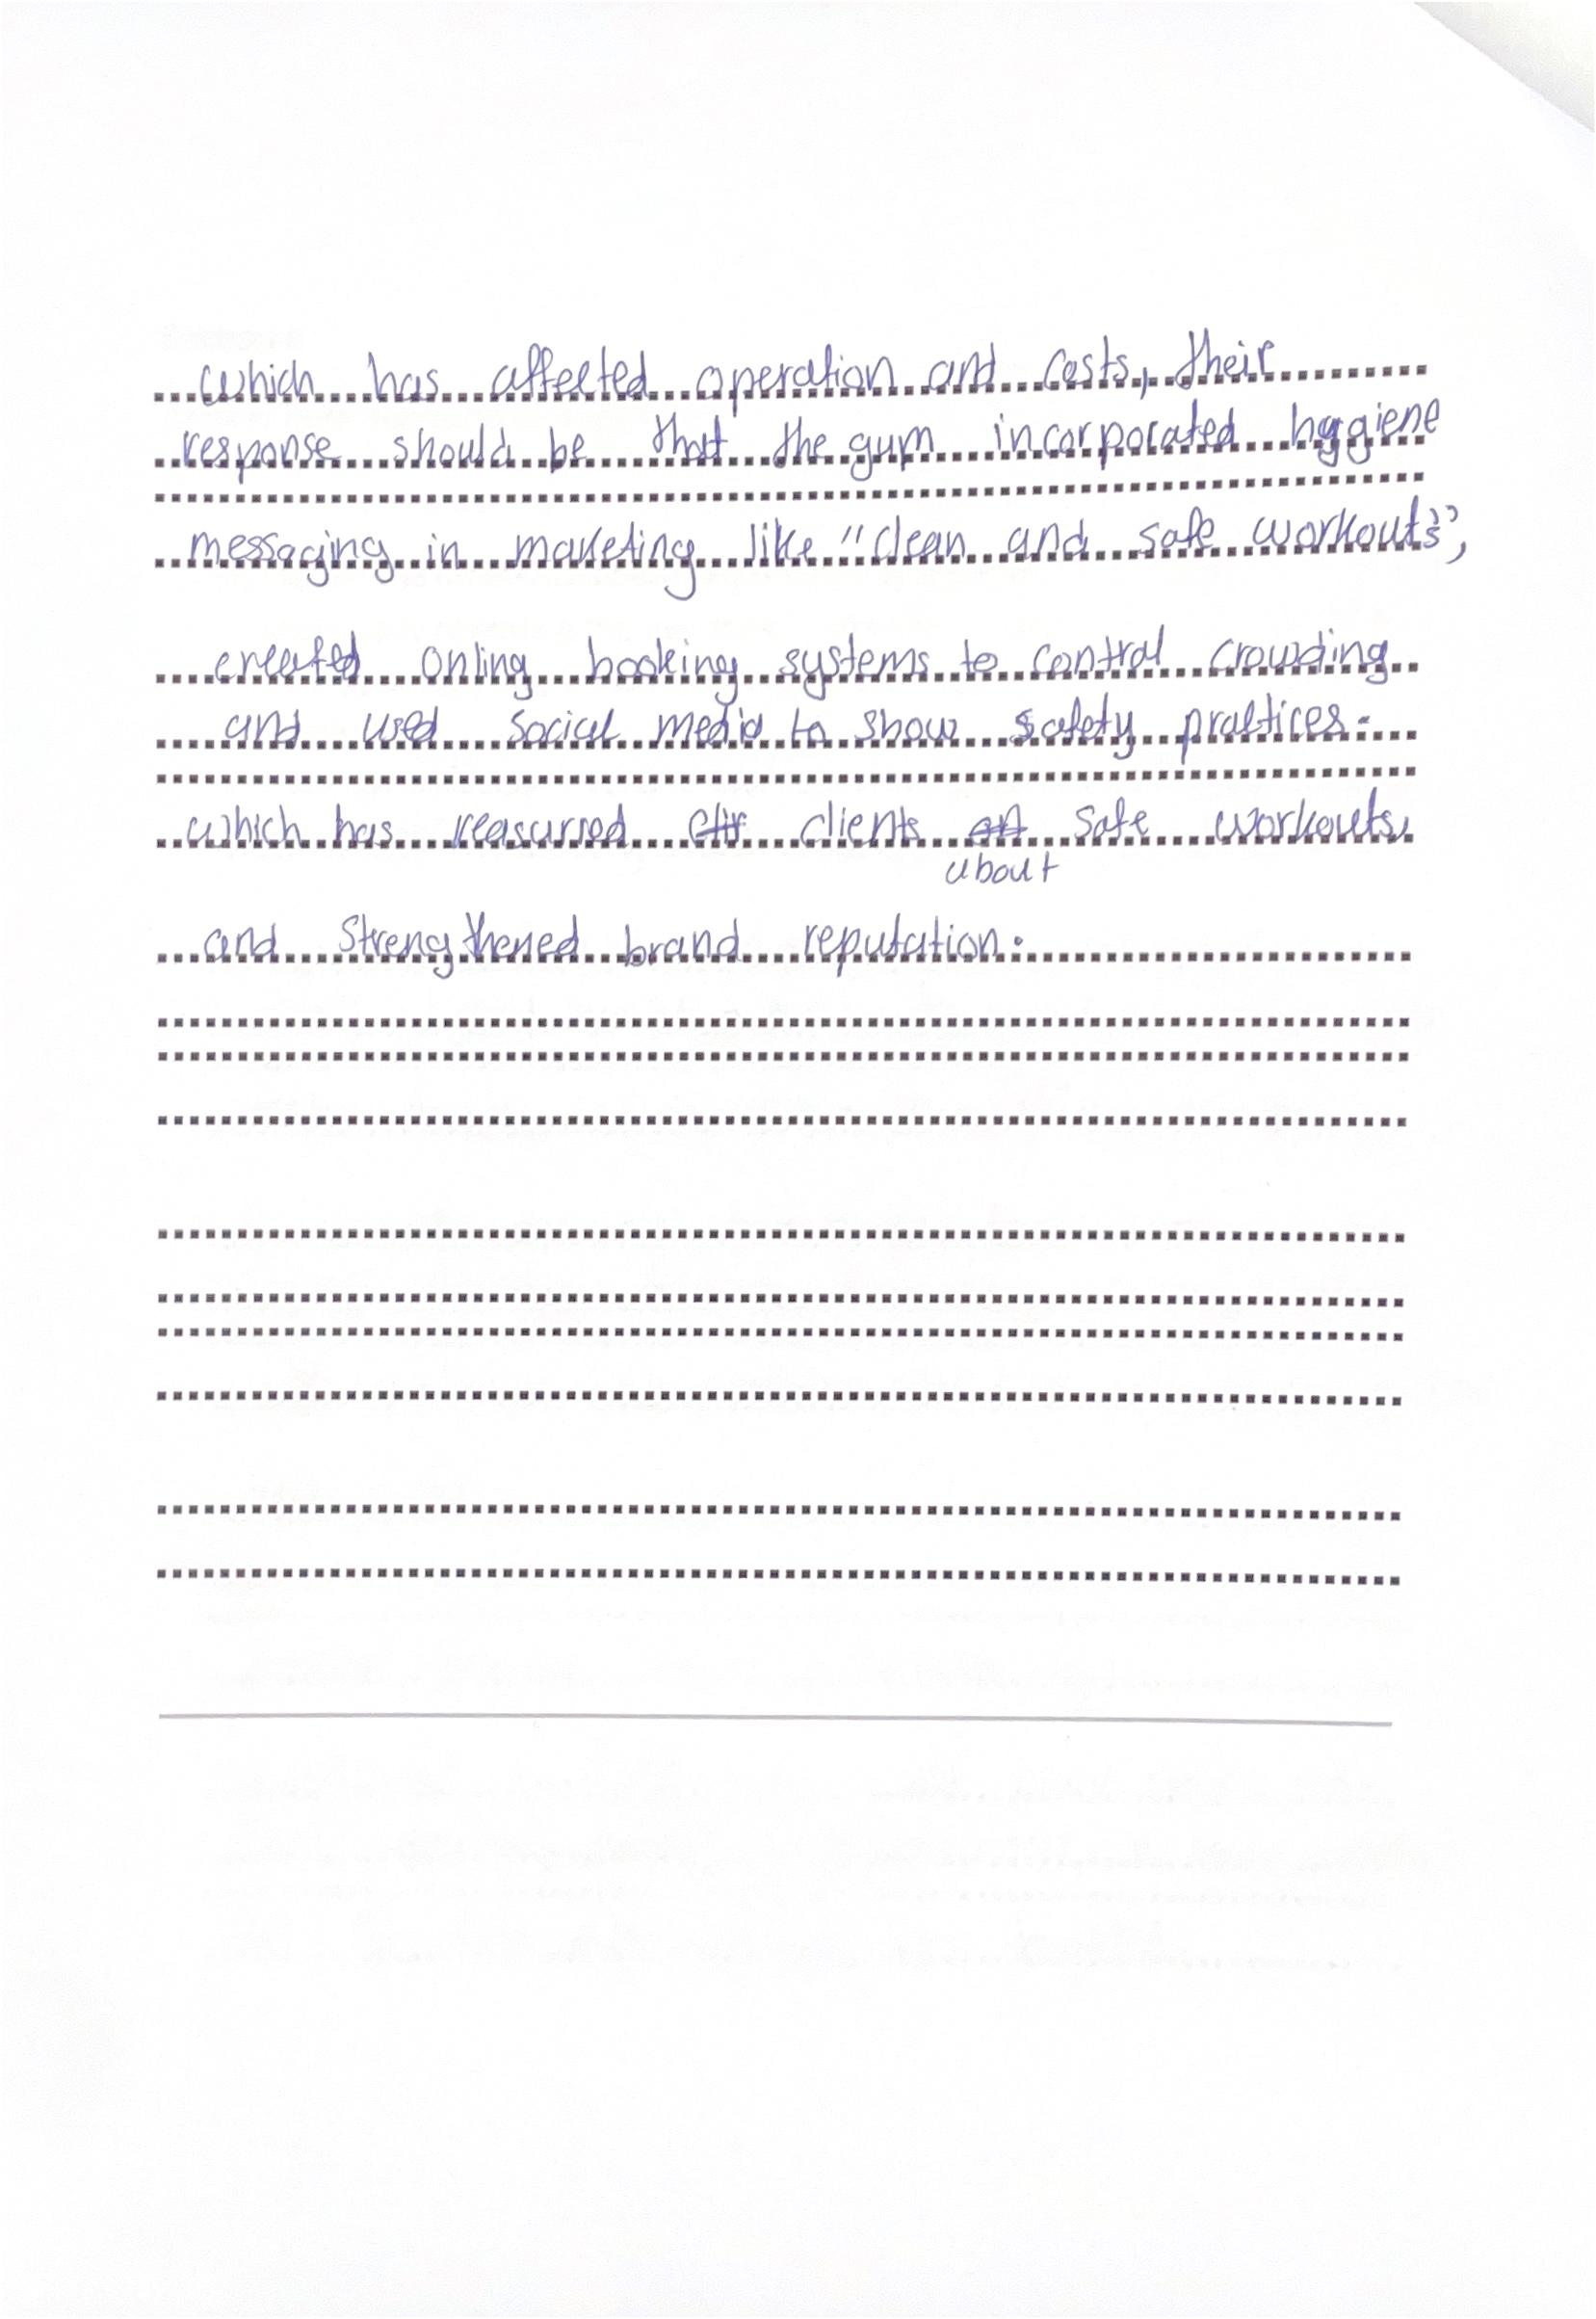 which has affected operation and costs, their
response should be that the gum incorporated hygiene
messaging in marketing like "clean and safe workouts",
created onling booking systems to control crowding
and used social media to show safety practices.
which has reasurred clients safe workouts.
about
and strengthened brand reputation.